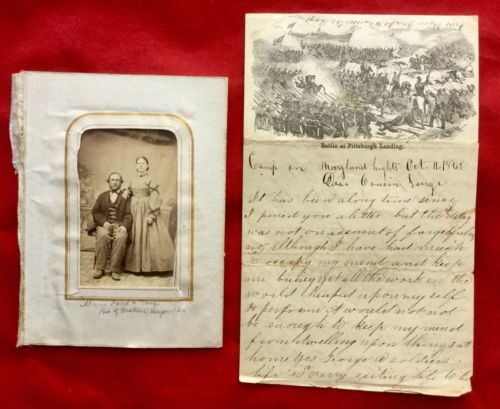 Battle at Pittsburgh Landing.
Camp on Maryland hights Oct 11 1862
Dear Cousin George
It has been along time since
I pened you a letter but the delay
was not on account of forgetfuln
although I have had much
to occupy my mind and keep
me busy yet all the work in the
world heaped upon my self
to perform A would not
be enough to keep my mind
from dwelling upon things at
home Yes George a soldiers
life is a very exiting life to be